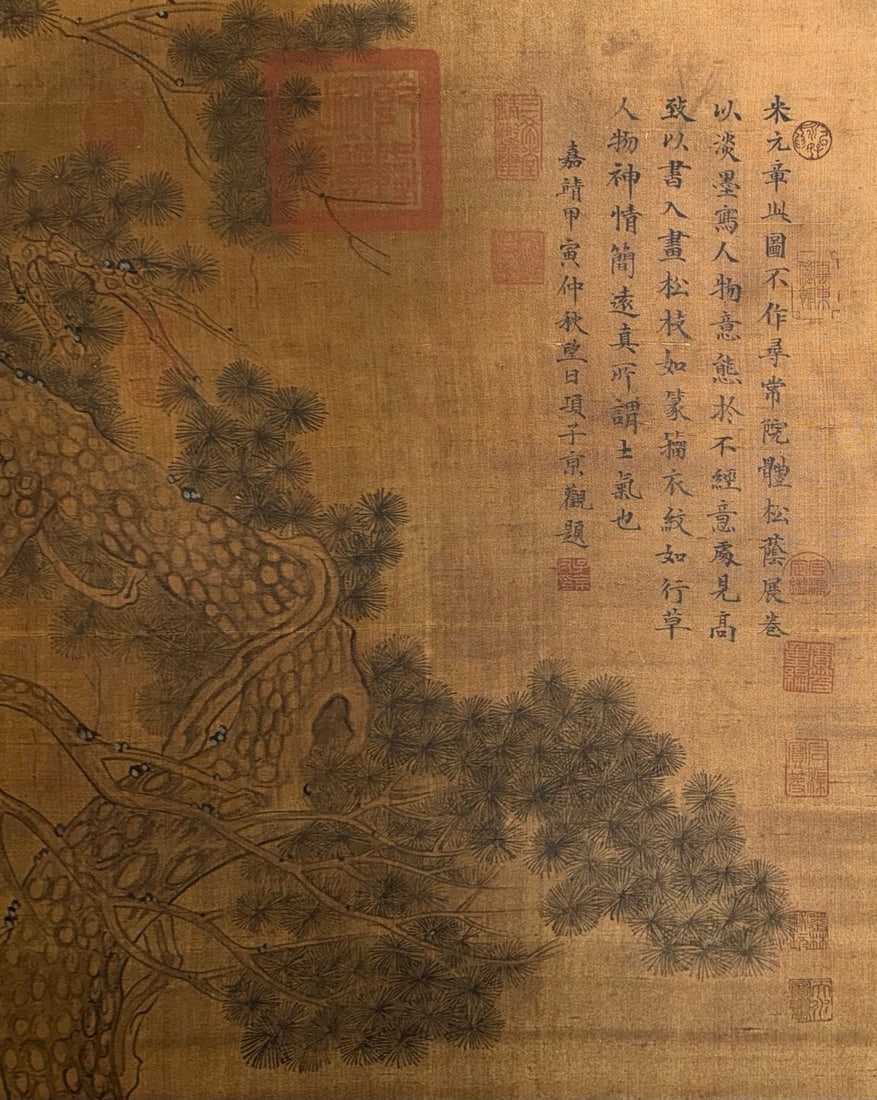 米元章此圖不作尋常院體松蔭展卷
以淡墨寫人物意態於不經意處見高
致以書入畫松枝如篆籀衣紋如行草
人物神情簡遠真所謂士氣也
嘉靖甲寅仲秋望日項子京觀題